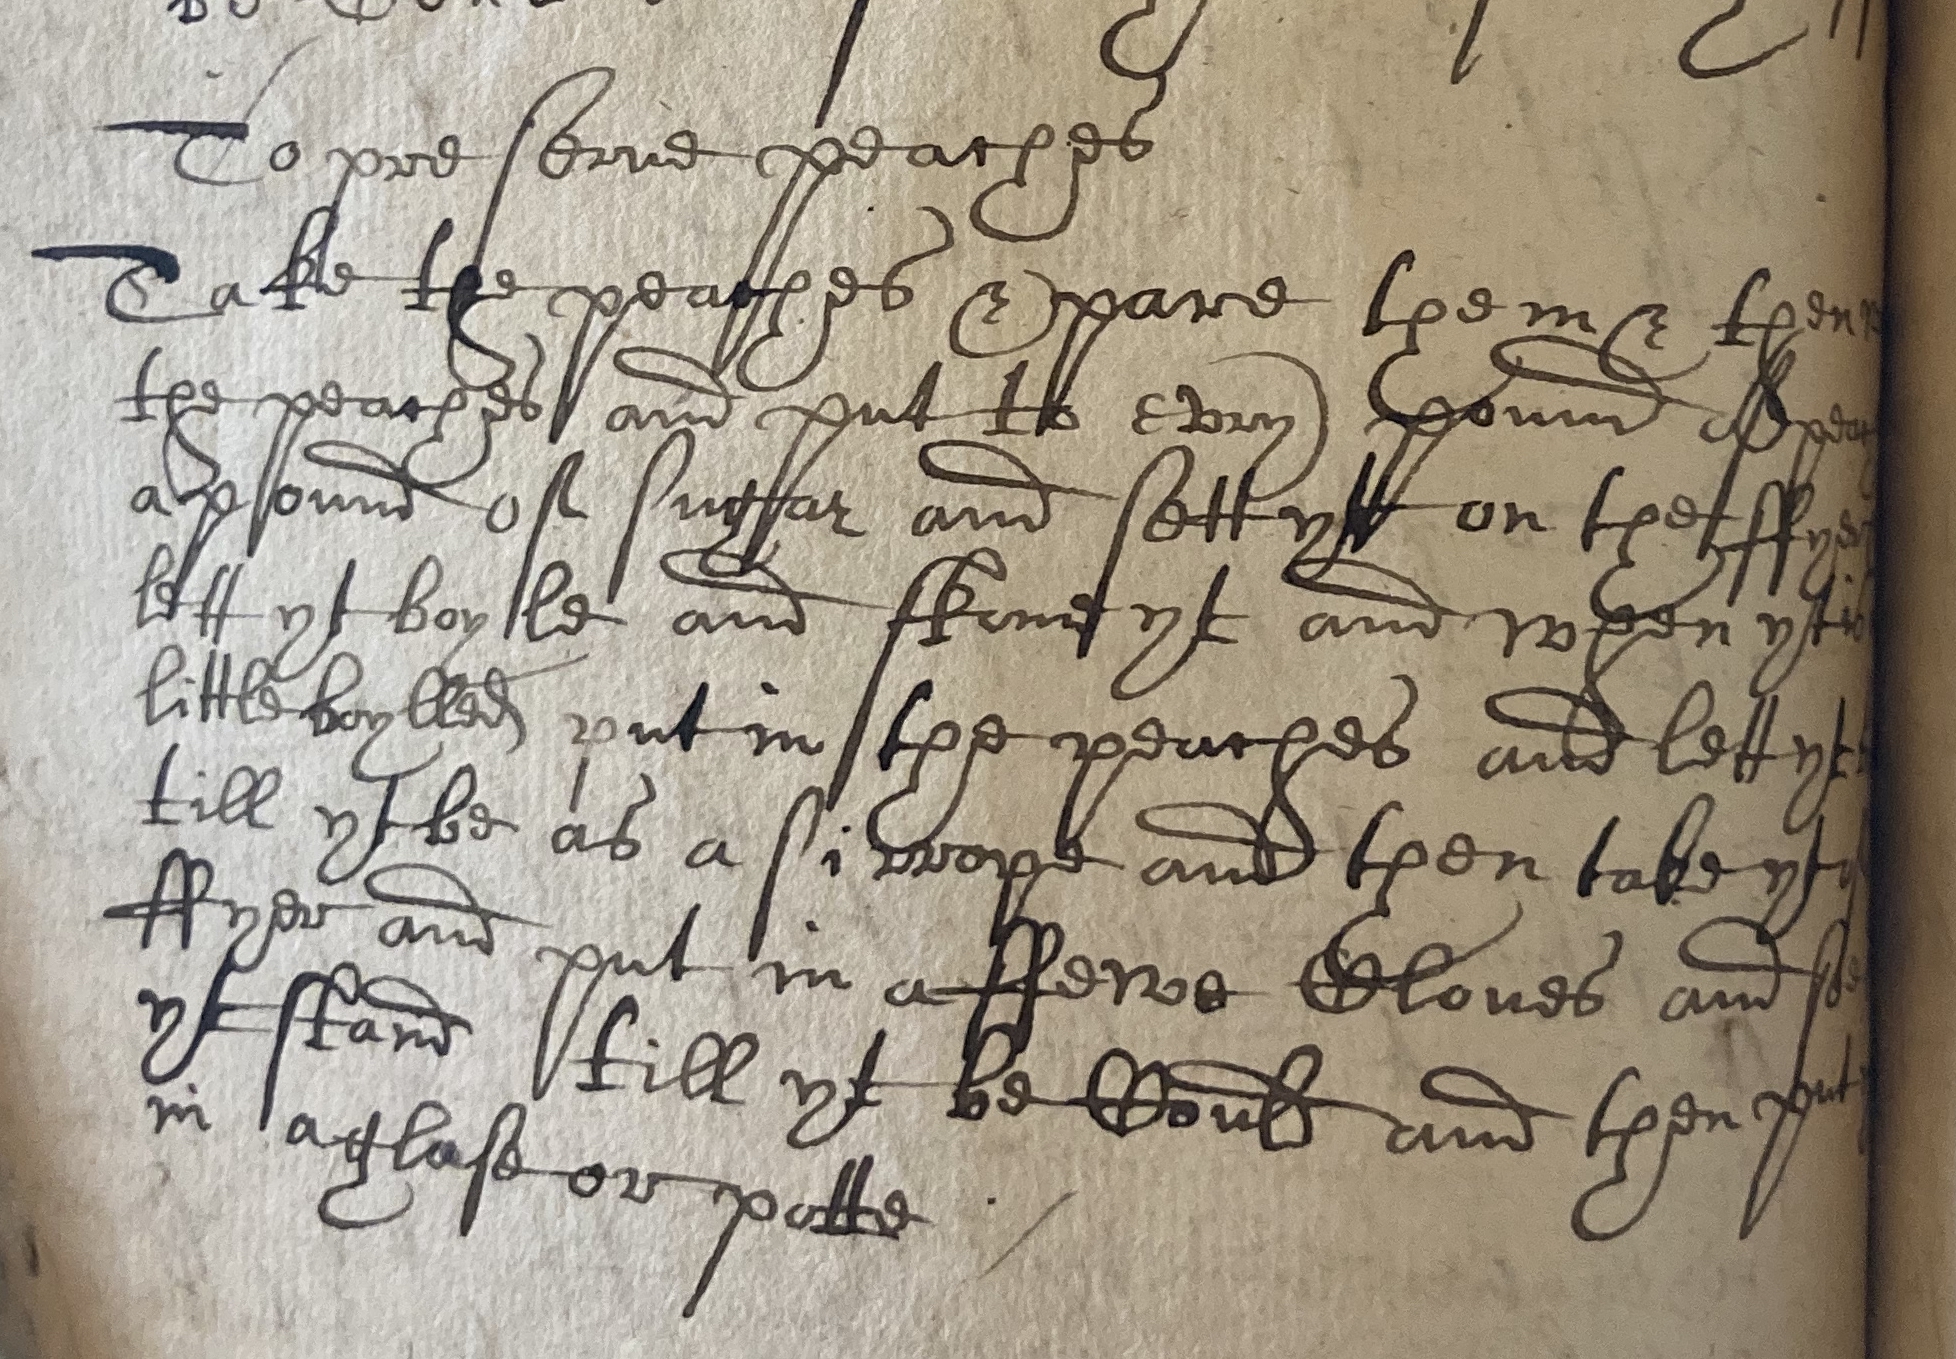 To preserve peaches
Take the peaches & pare them & then
the peaches and put to every pound of
a pound of suggar and sett yt on the ffyer
lett yt boyle and skome yt and when yt is
little boylled put in the peaches and lett yt
till yt be as a sirrope and then take yt
ffyer and put in a ffewe Cloves and
yt stand till yt be Could and then put
in a glase or potte